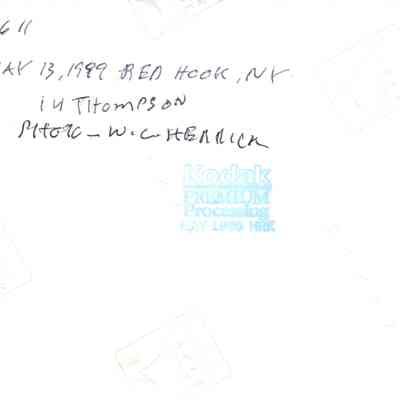 611
MAY 13, 1999 RED HOOK, NY
IH THOMPSON
PHOTO - W. C. HERRICK
Kodak
PREMIUM
Processing
MAY 1999 HRK